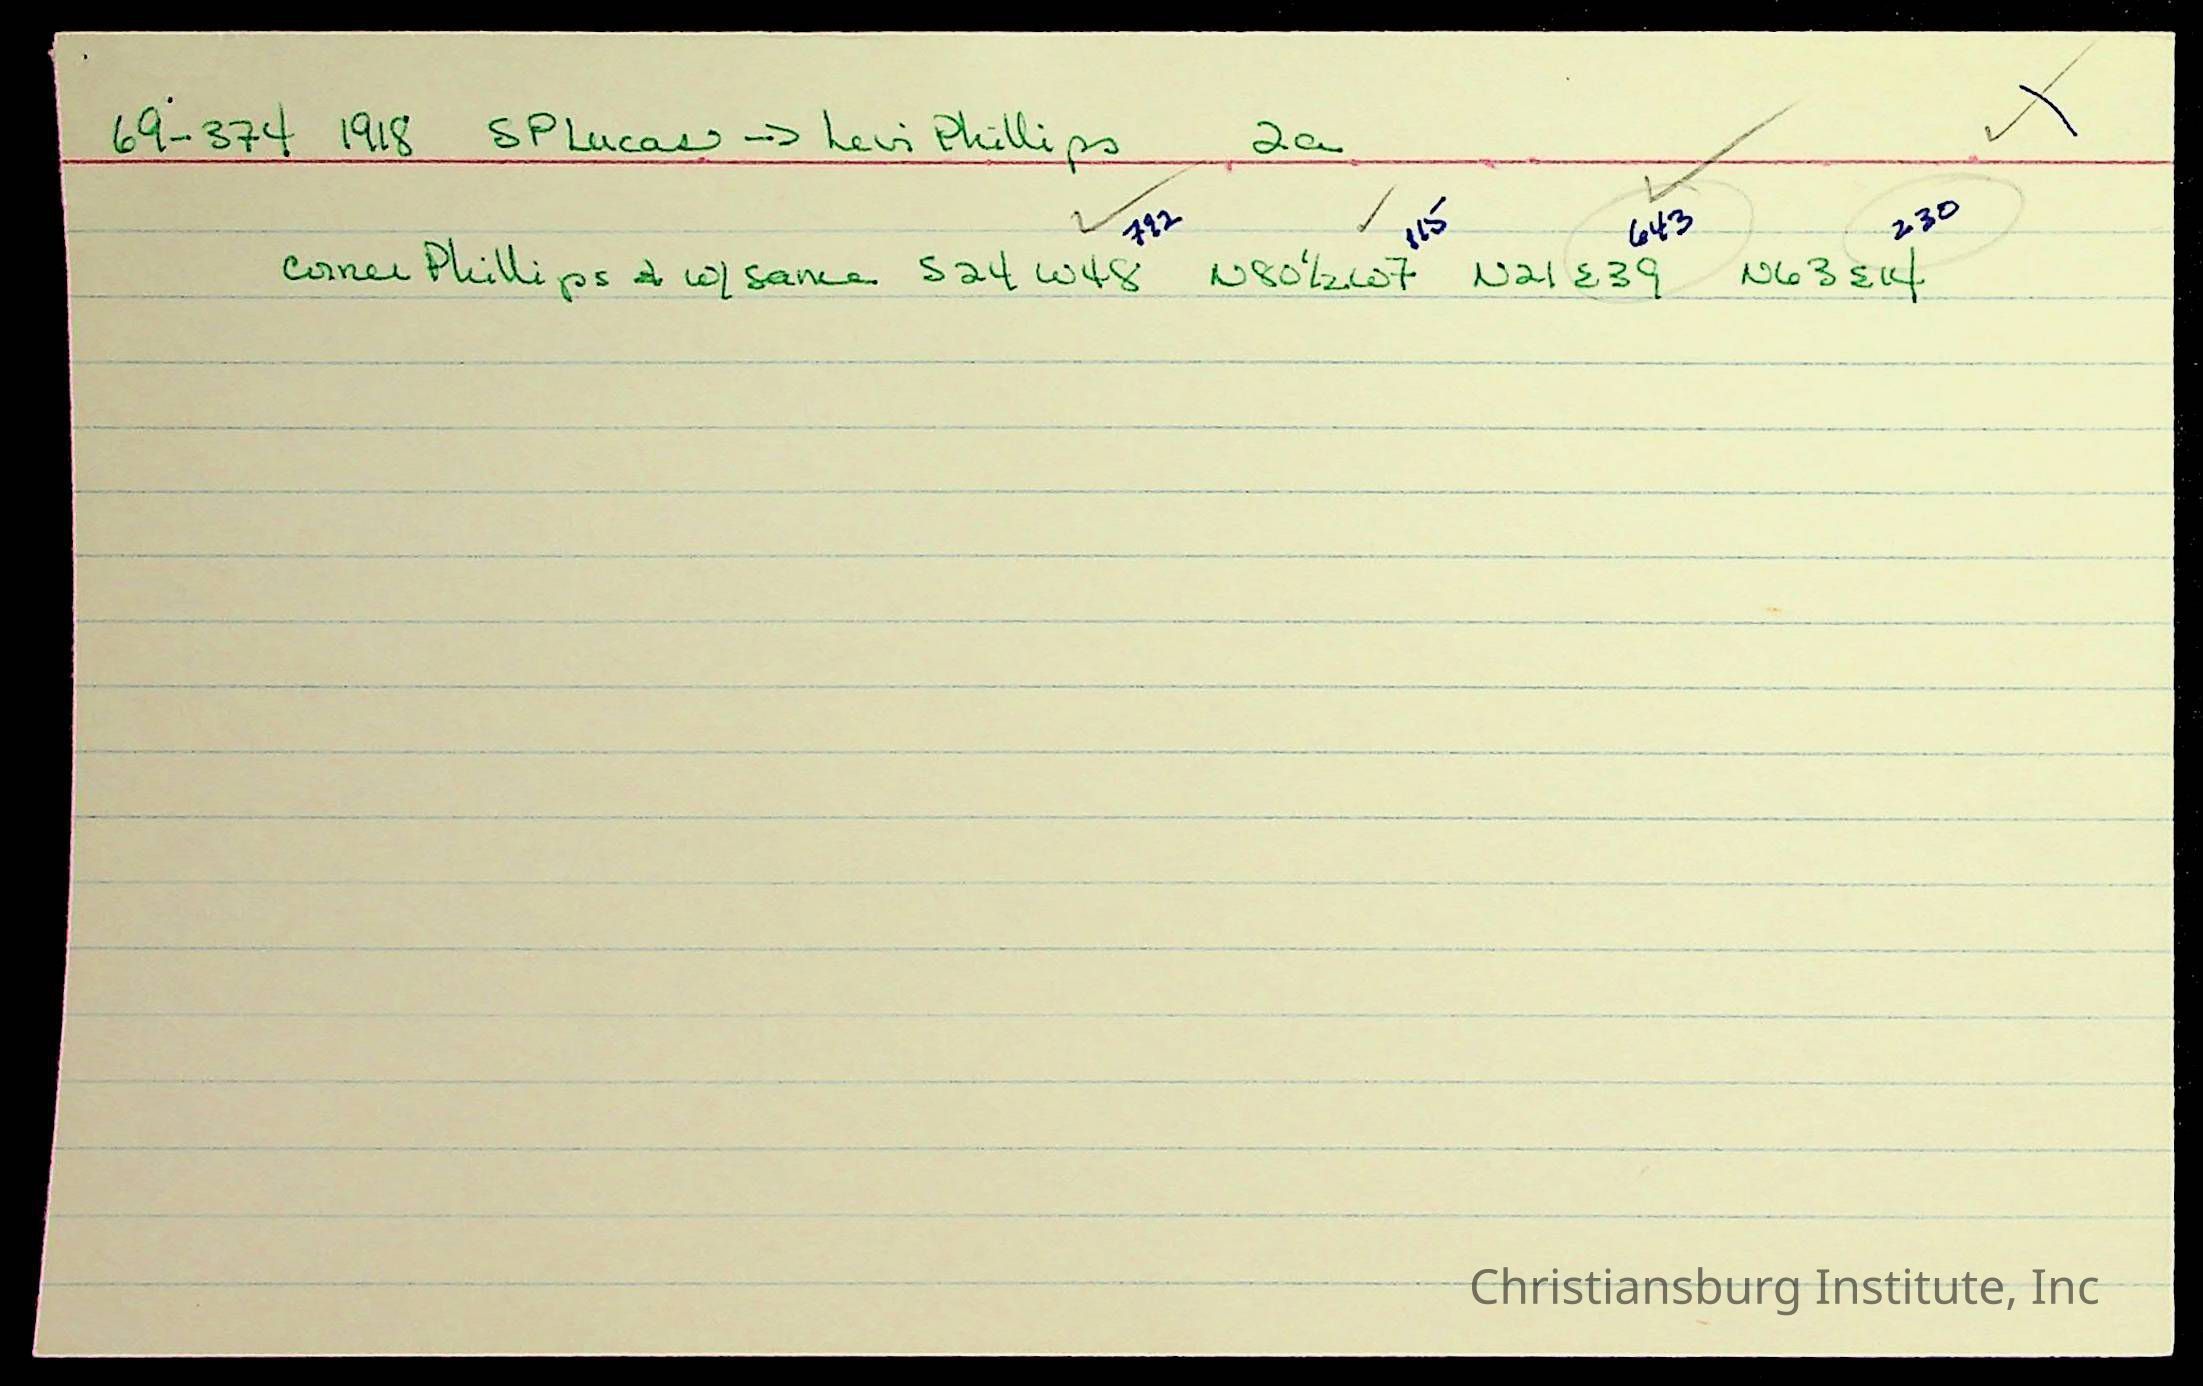 69-374 1918 SP Lucas → Levi Phillips 2a
792 115 643 230
corner Phillips & w/ same S24 W48 N80½W7 N21E39 N63E14
Christiansburg Institute, Inc